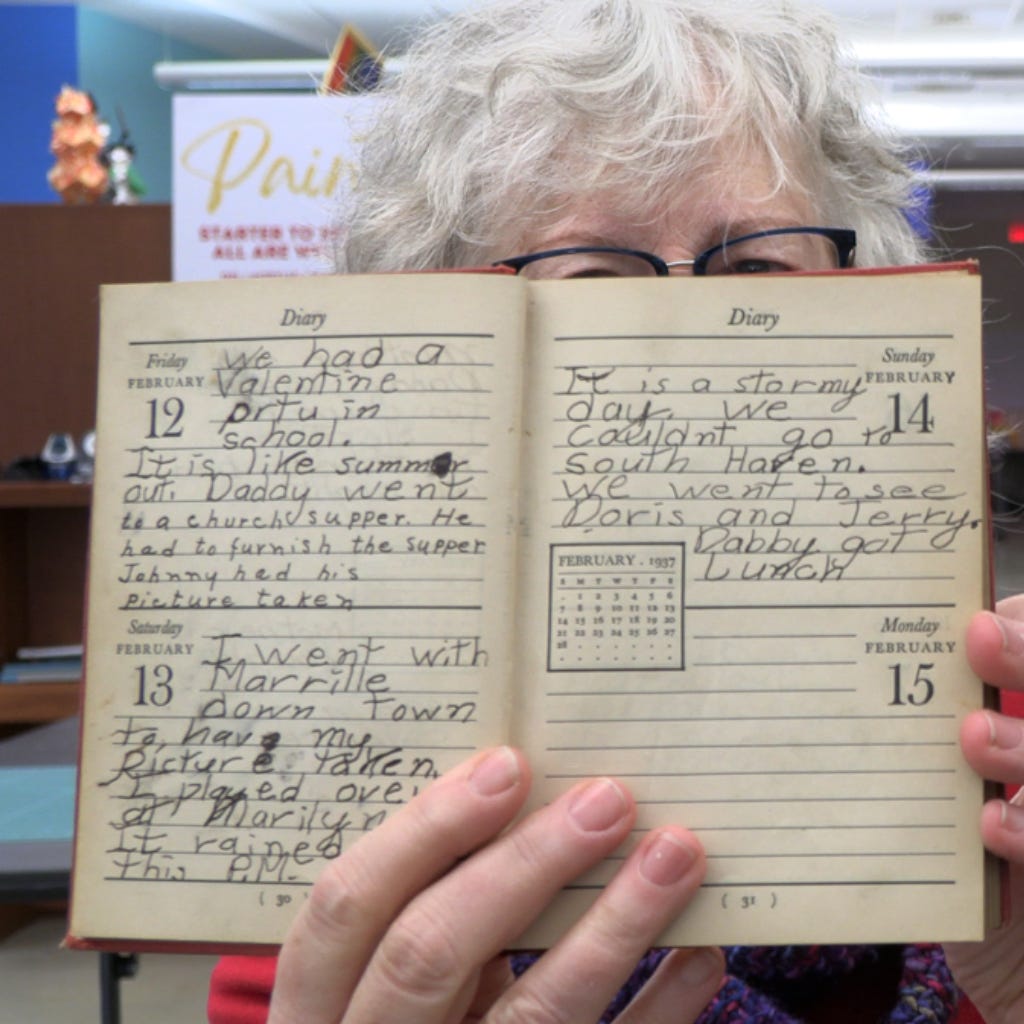 Pain
STARTER TO
ALL ARE
Diary
Friday
FEBRUARY
12
We had a
Valentine
prtu in
school.
It is like summer
out. Daddy went
to a church supper. He
had to furnish the supper
Johnny had his
picture taken
Saturday
FEBRUARY
13
I went with
Marrille
down town
to have my
picture taken.
I played over
at Marilyn
It rained
this P.M.
( 30 )
Diary
Sunday
FEBRUARY
14
It is a stormy
day. We
couldnt go to
South Haven.
We went to see
Doris and Jerry.
Dabby got
Lunch
FEBRUARY . 1937
S M T W T F S
. 1 2 3 4 5 6
7 8 9 10 11 12 13
14 15 16 17 18 19 20
21 22 23 24 25 26 27
28 . . . . . .
. . . . . . .
Monday
FEBRUARY
15
( 31 )